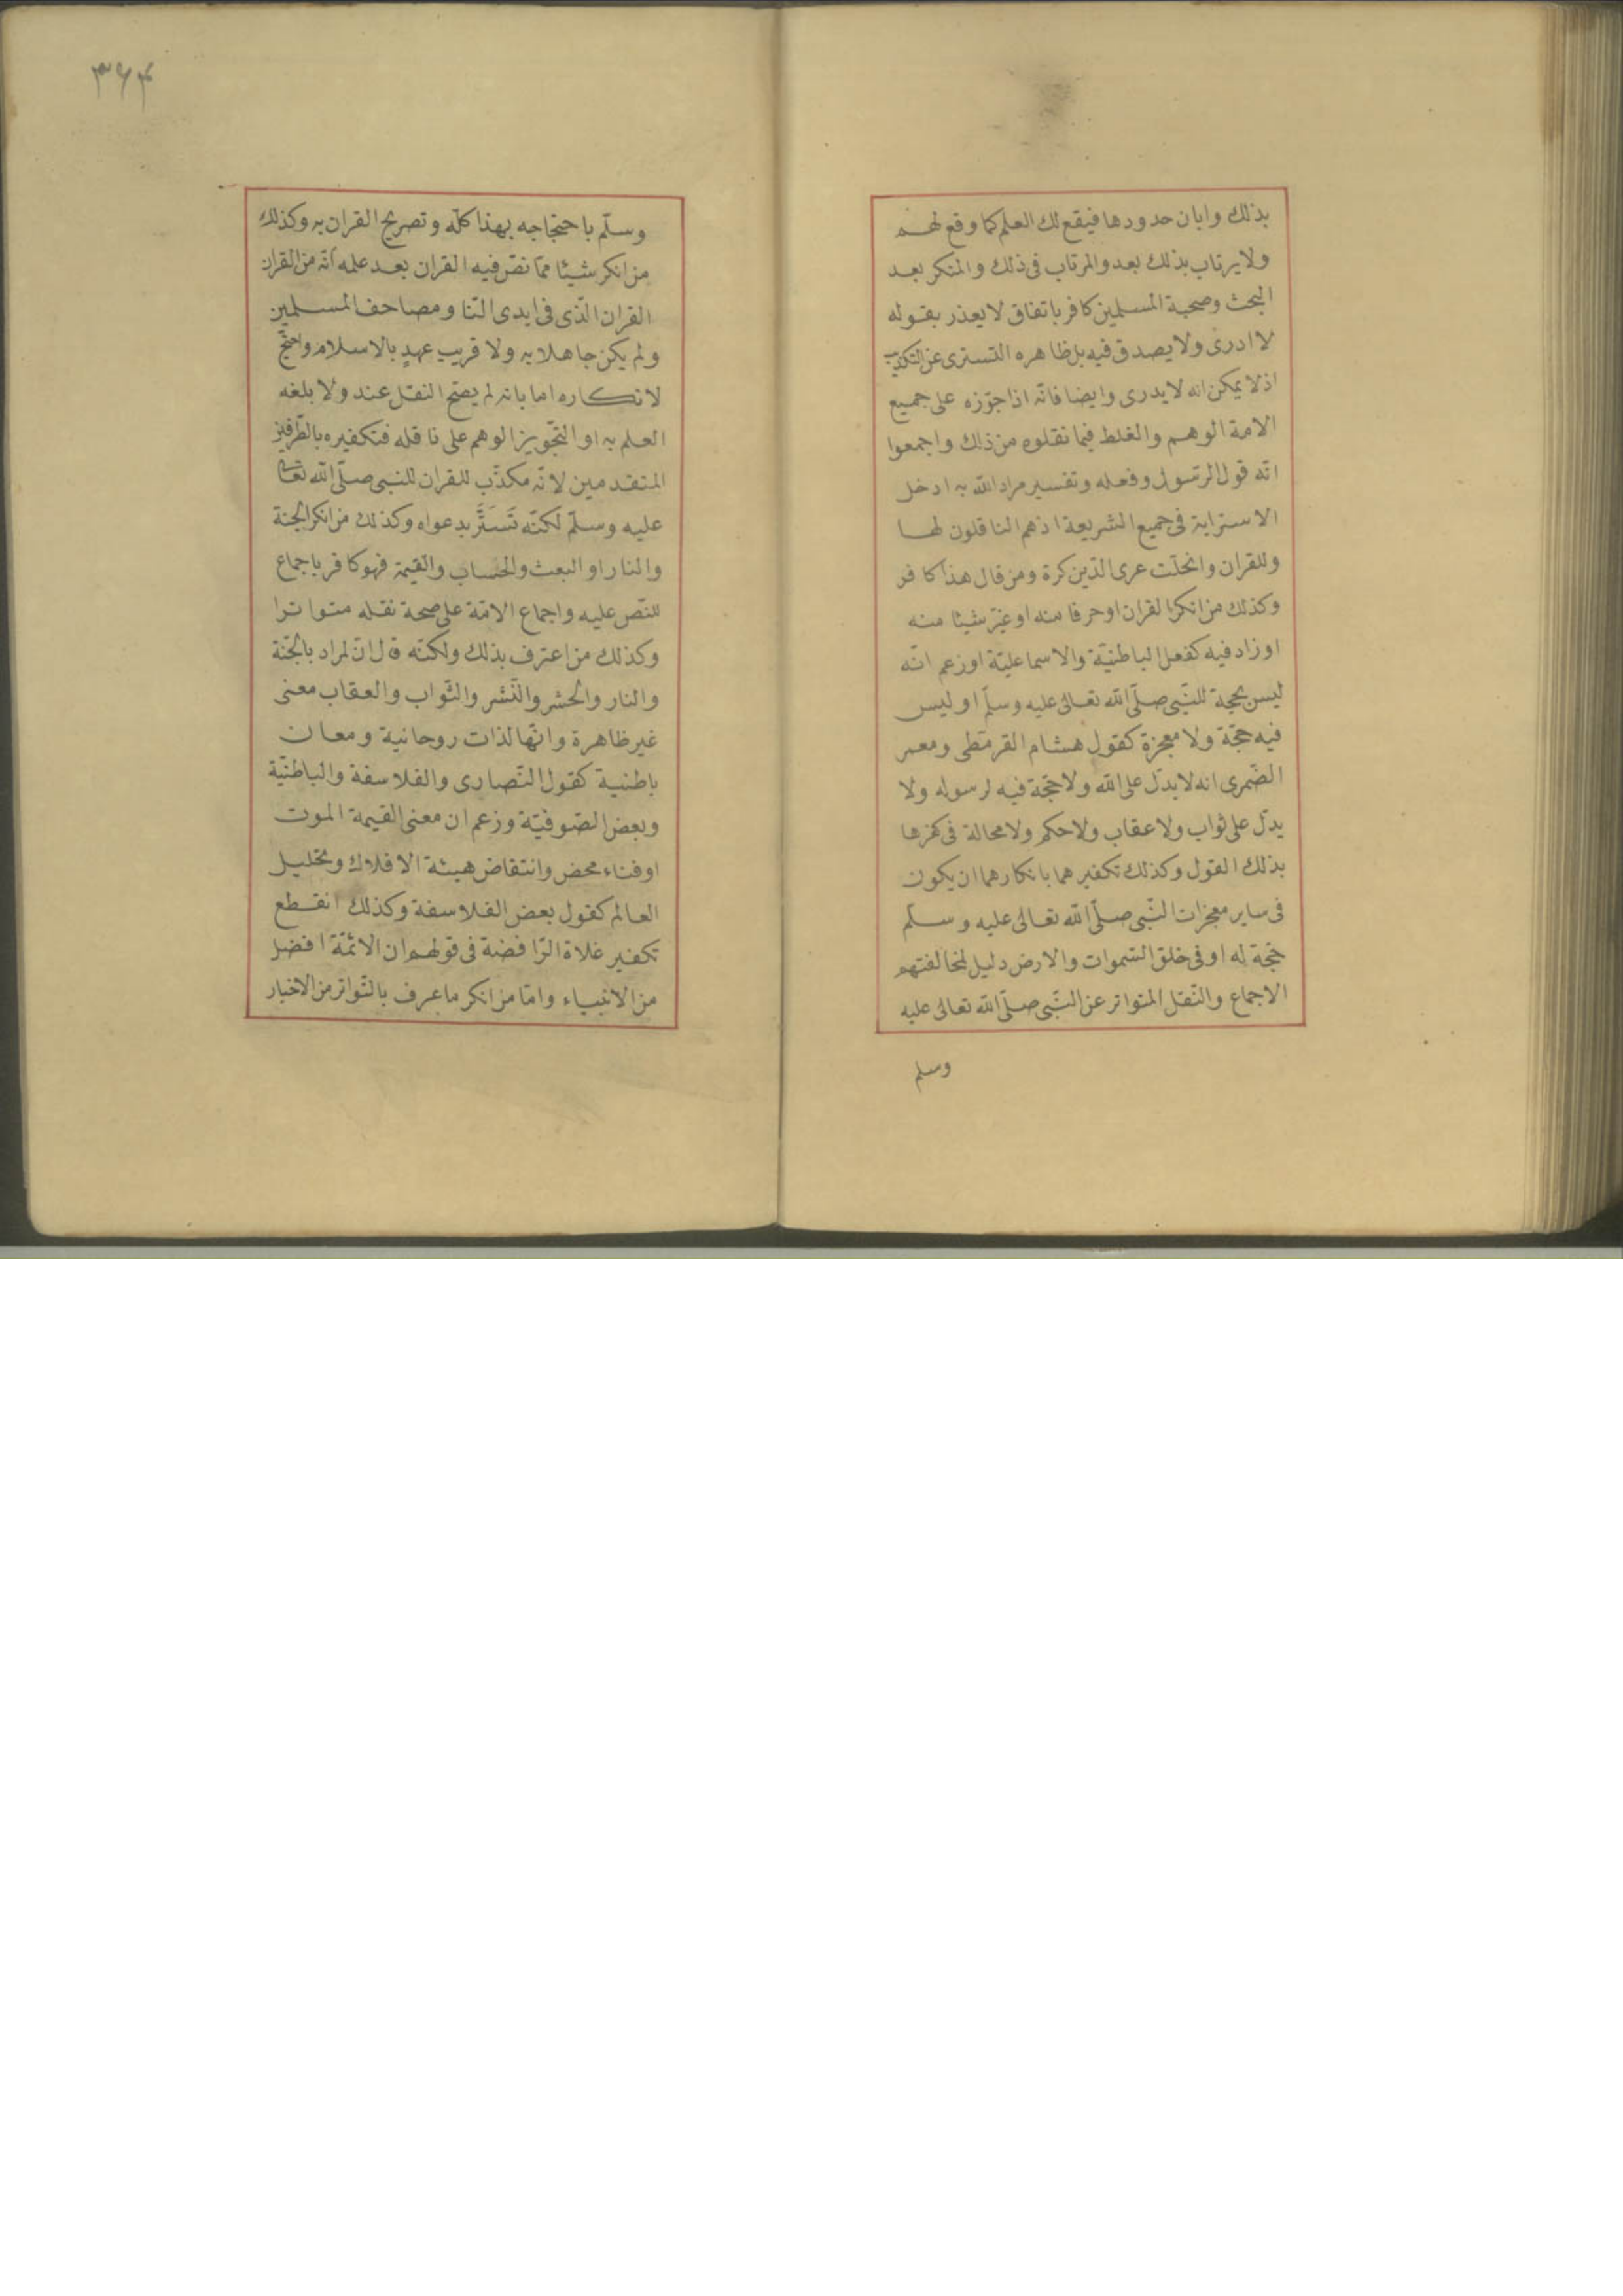 بذلك وابان حدودها فيقع لك العلم كما وقع لهم
ولا يرتاب بذلك بعد والمرتاب فى ذلك والمنكر بعد
البحث وصحبة المسلمين كافر باتفاق لا يعذر بقوله
لا ادرى ولا يصدق فيه بل ظاهره التسترى عن التكذيب
اذ لا يمكن انه لا يدرى وايضا فانّه اذا جوّزه على جميع
الامة الوهم والغلط فيما نقلوه من ذلك واجمعوا
انّه قول الرّسول وفعله وتفسير مراد الله به ادخل
الاسترابة فى جميع الشريعة اذ هم الناقلون لها
وللقران وانحلّت عرى الدّين كرة ومن قال هذا كافر
وكذلك من انكر القران او حرفا منه او غيّر شيئا منه
او زاد فيه كفعل الباطنيّة والاسماعليّة او زعم انّه
ليس بحجة للنّبى صلّى الله تعالى عليه وسلّم او ليس
فيه حجّة ولا معجزة كقول هشام القرمطى ومعمر
الضّمرى انه لا يدلّ على الله ولا حجّة فيه لرسوله ولا
يدلّ على ثواب ولا عقاب ولا حكم ولا محالة فى كفرها
بذلك القول وكذلك تكفيرهما بانكارهما ان يكون
فى ساير معجزات النّبى صلّى الله تعالى عليه وسلّم
حجّة له او فى خلق السّموات والارض دليل لمخالفتهم
الاجماع والنّقل المتواتر عن النّبى صلّى الله تعالى عليه
وسلم
٣٦٤
وسلّم باحتجاجه بهذا كلّه وتصريح القران به وكذلك
من انكر شيئا ممّا نصّ فيه القران بعد علمه انّه من القران
القران الّذى فى ايدى النّا ومصاحف المسلمين
ولم يكن جاهلا به ولا قريب عهدٍ بالاسلام واحتجّ
لانكاره اما بانه لم يصحّ النقل عند ولا بلغه
العلم به او التّجويز الوهم على ناقله فتكفيره بالطّرفين
المتقدمين لانّه مكذّب للقران للنبى صلّى الله تعا
عليه وسلّم لكنّه تَسَتَّرَ بدعواه وكذلك من انكر الجنة
والنار او البعث والحساب والقيمة فهو كافر باجماع
للنّص عليه واجماع الامّة على صحة نقله متواترا
وكذلك من اعترف بذلك ولكنّه قال انّ لمراد بالجّنة
والنار والحشر والنّشر والثّواب والعقاب معنى
غير ظاهرة وانّها لذات روحانية ومعان
باطنية كقول النّصارى والفلاسفة والباطنّية
وبعض الصّوفيّة وزعم ان معنى القيمة الموت
او فناء محض وانتقاض هيئة الافلاك وتحليل
العالم كقول بعض الفلاسفة وكذلك انقطع
تكفير غلاة الرّافضة فى قولهم ان الائمّة افضل
من الانبياء وامّا من انكر ما عرف بالتّواتر من الاخبار